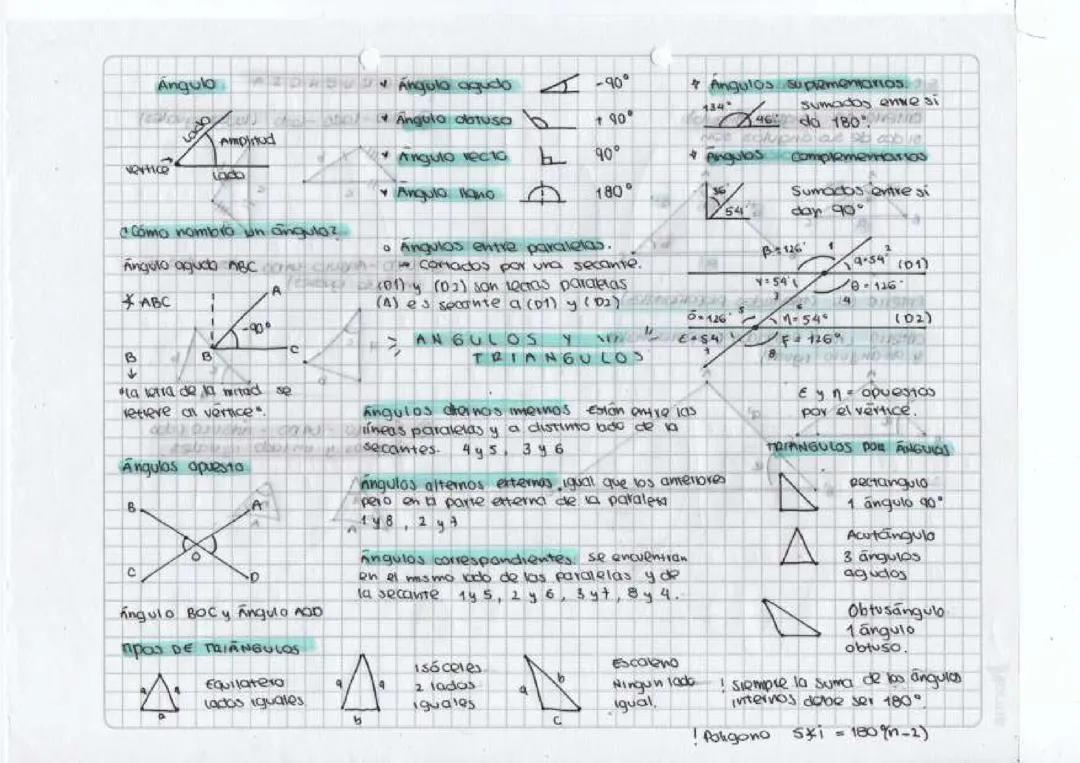 Ángulo
Lado
Amplitud
vértice
lado
¿Cómo nombro un ángulo?
Ángulo agudo ABC
∢ ABC
A
-90°
B
C
B
↓
"la letra de la mitad se
refiere al vértice".
Ángulos opuesto
B
A
O
C
D
Ángulo BOC y Ángulo AOD
* Ángulo agudo -90°
* Ángulo obtuso +90°
* Ángulo recto 90°
* Ángulo llano 180°
o Ángulos entre paralelas.
→ Cortados por una secante.
(D1) y (D2) son rectas paralelas
(Δ) es secante a (D1) y (D2)
ANGULOS Y
TRIANGULOS
Ángulos alternos internos Están entre las
líneas paralelas y a distinto lado de la
secantes. 4 y 5, 3 y 6
Ángulos alternos externos, igual que los anteriores
pero en la parte externa de la paralela
1 y 8, 2 y 7
Ángulos correspondientes, se encuentran
en el mismo lado de las paralelas y de
la secante 1 y 5, 2 y 6, 3 y 7, 8 y 4.
* Ángulos suplementarios.
134°
46°
Sumados entre si
da 180°.
* Ángulos complementarios
36°
54°
Sumados entre sí
dan 90°
β=126° 1 2
α=54° (D1)
γ=54° θ=126°
3 4
δ=126° 5 6 η=54° (D2)
ε=54° 7 F=126°
8
ε y η = opuestos
por el vértice.
TRIÁNGULOS POR ÁNGULOS
Rectangulo
1 ángulo 90°
Acutángulo
3 ángulos
agudos
Obtusángulo
1 ángulo
obtuso.
TIPOS DE TRIÁNGULOS
a a
a
Equilatero
lados iguales
a a
b
Isóceles
2 lados
iguales
a b
c
Escaleno
Ningun lado
igual.
! siempre la suma de los ángulos
internos debe ser 180°.
! Poligono S∢i = 180°(n-2)